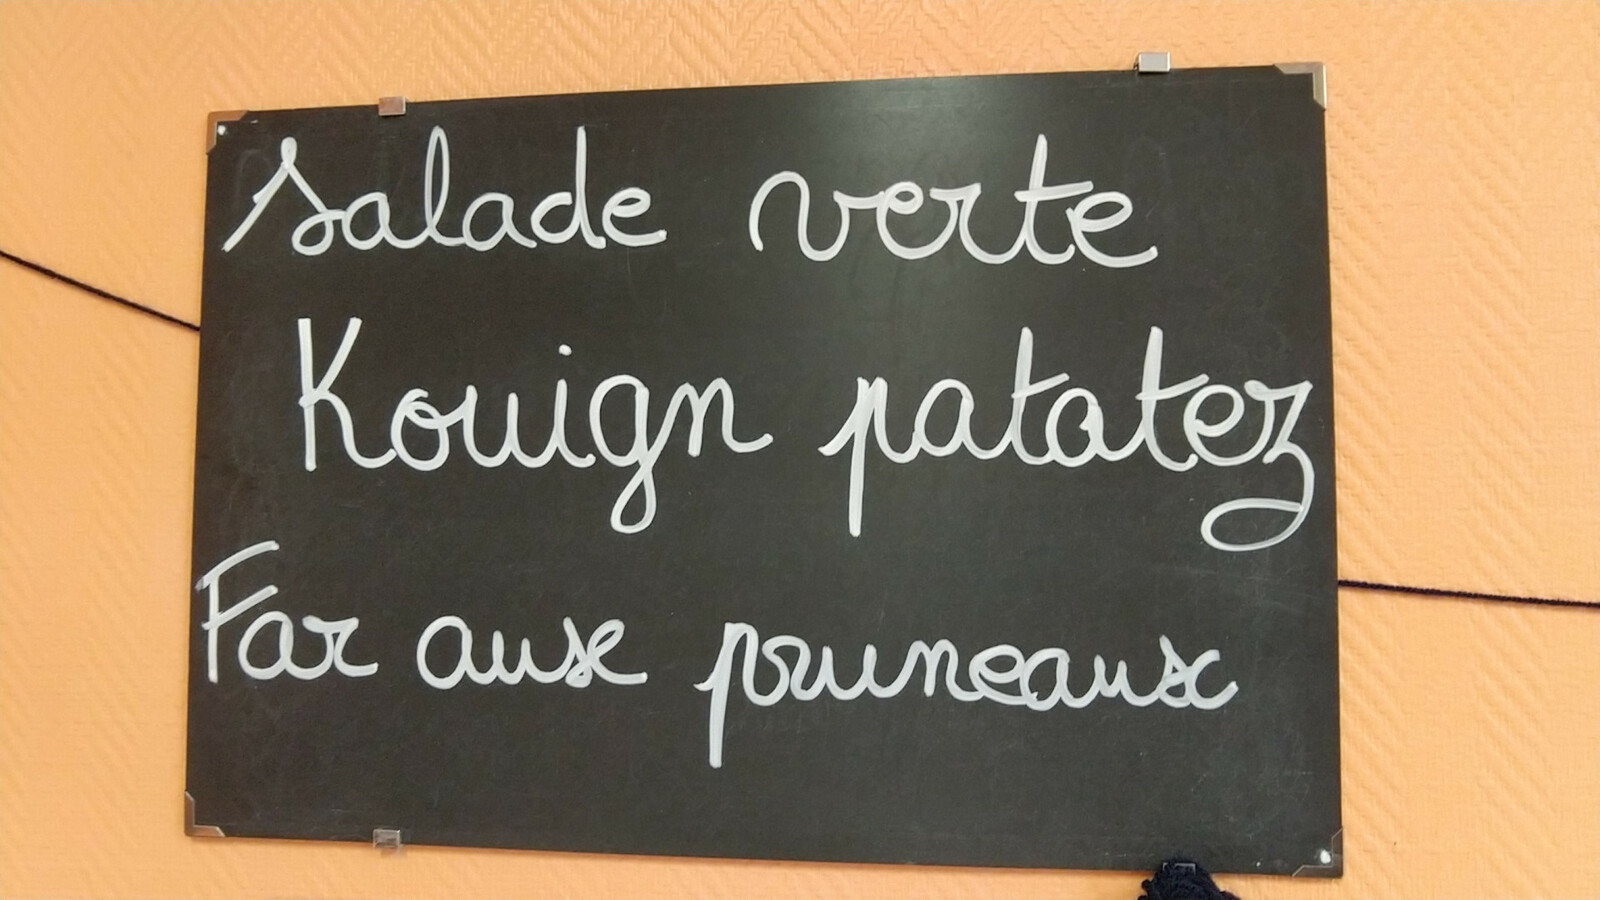 Salade verte
Kouign patatez
Far aux pruneaux